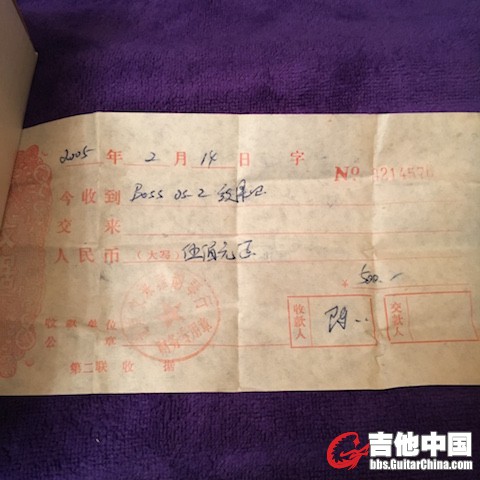 2005 年 2 月 14 日 字
No. 3214576
今收到 Boss OS-2 效果器
交来
人民币(大写)伍佰元正
¥ 500.-
收款单位
公章
收款人
交款人
第二联收据
吉他中国
bbs.GuitarChina.com